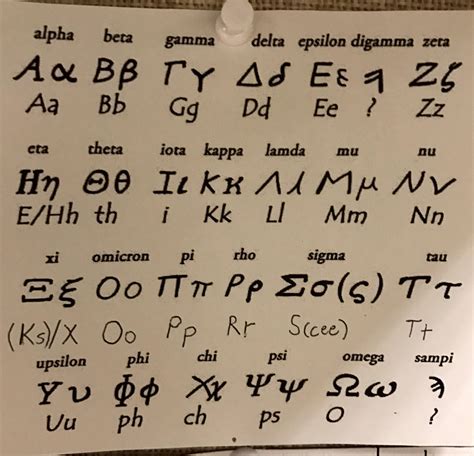 alpha beta gamma delta epsilon digamma zeta
Αα Ββ Γγ Δδ Εε Ζζ
Aa Bb Gg Dd Ee ? Zz
eta theta iota kappa lamda mu nu
Ηη Θθ Ιι Κκ Λλ Μμ Νν
E/Hh th i Kk Ll Mm Nn
xi omicron pi rho sigma tau
Ξξ Οο Ππ Ρρ Σσ(ς) Ττ
(Ks)/X Oo Pp Rr S(cee) Tt
upsilon phi chi psi omega sampi
Υυ Φφ Χχ Ψψ Ωω ϡ
Uu ph ch ps O ?